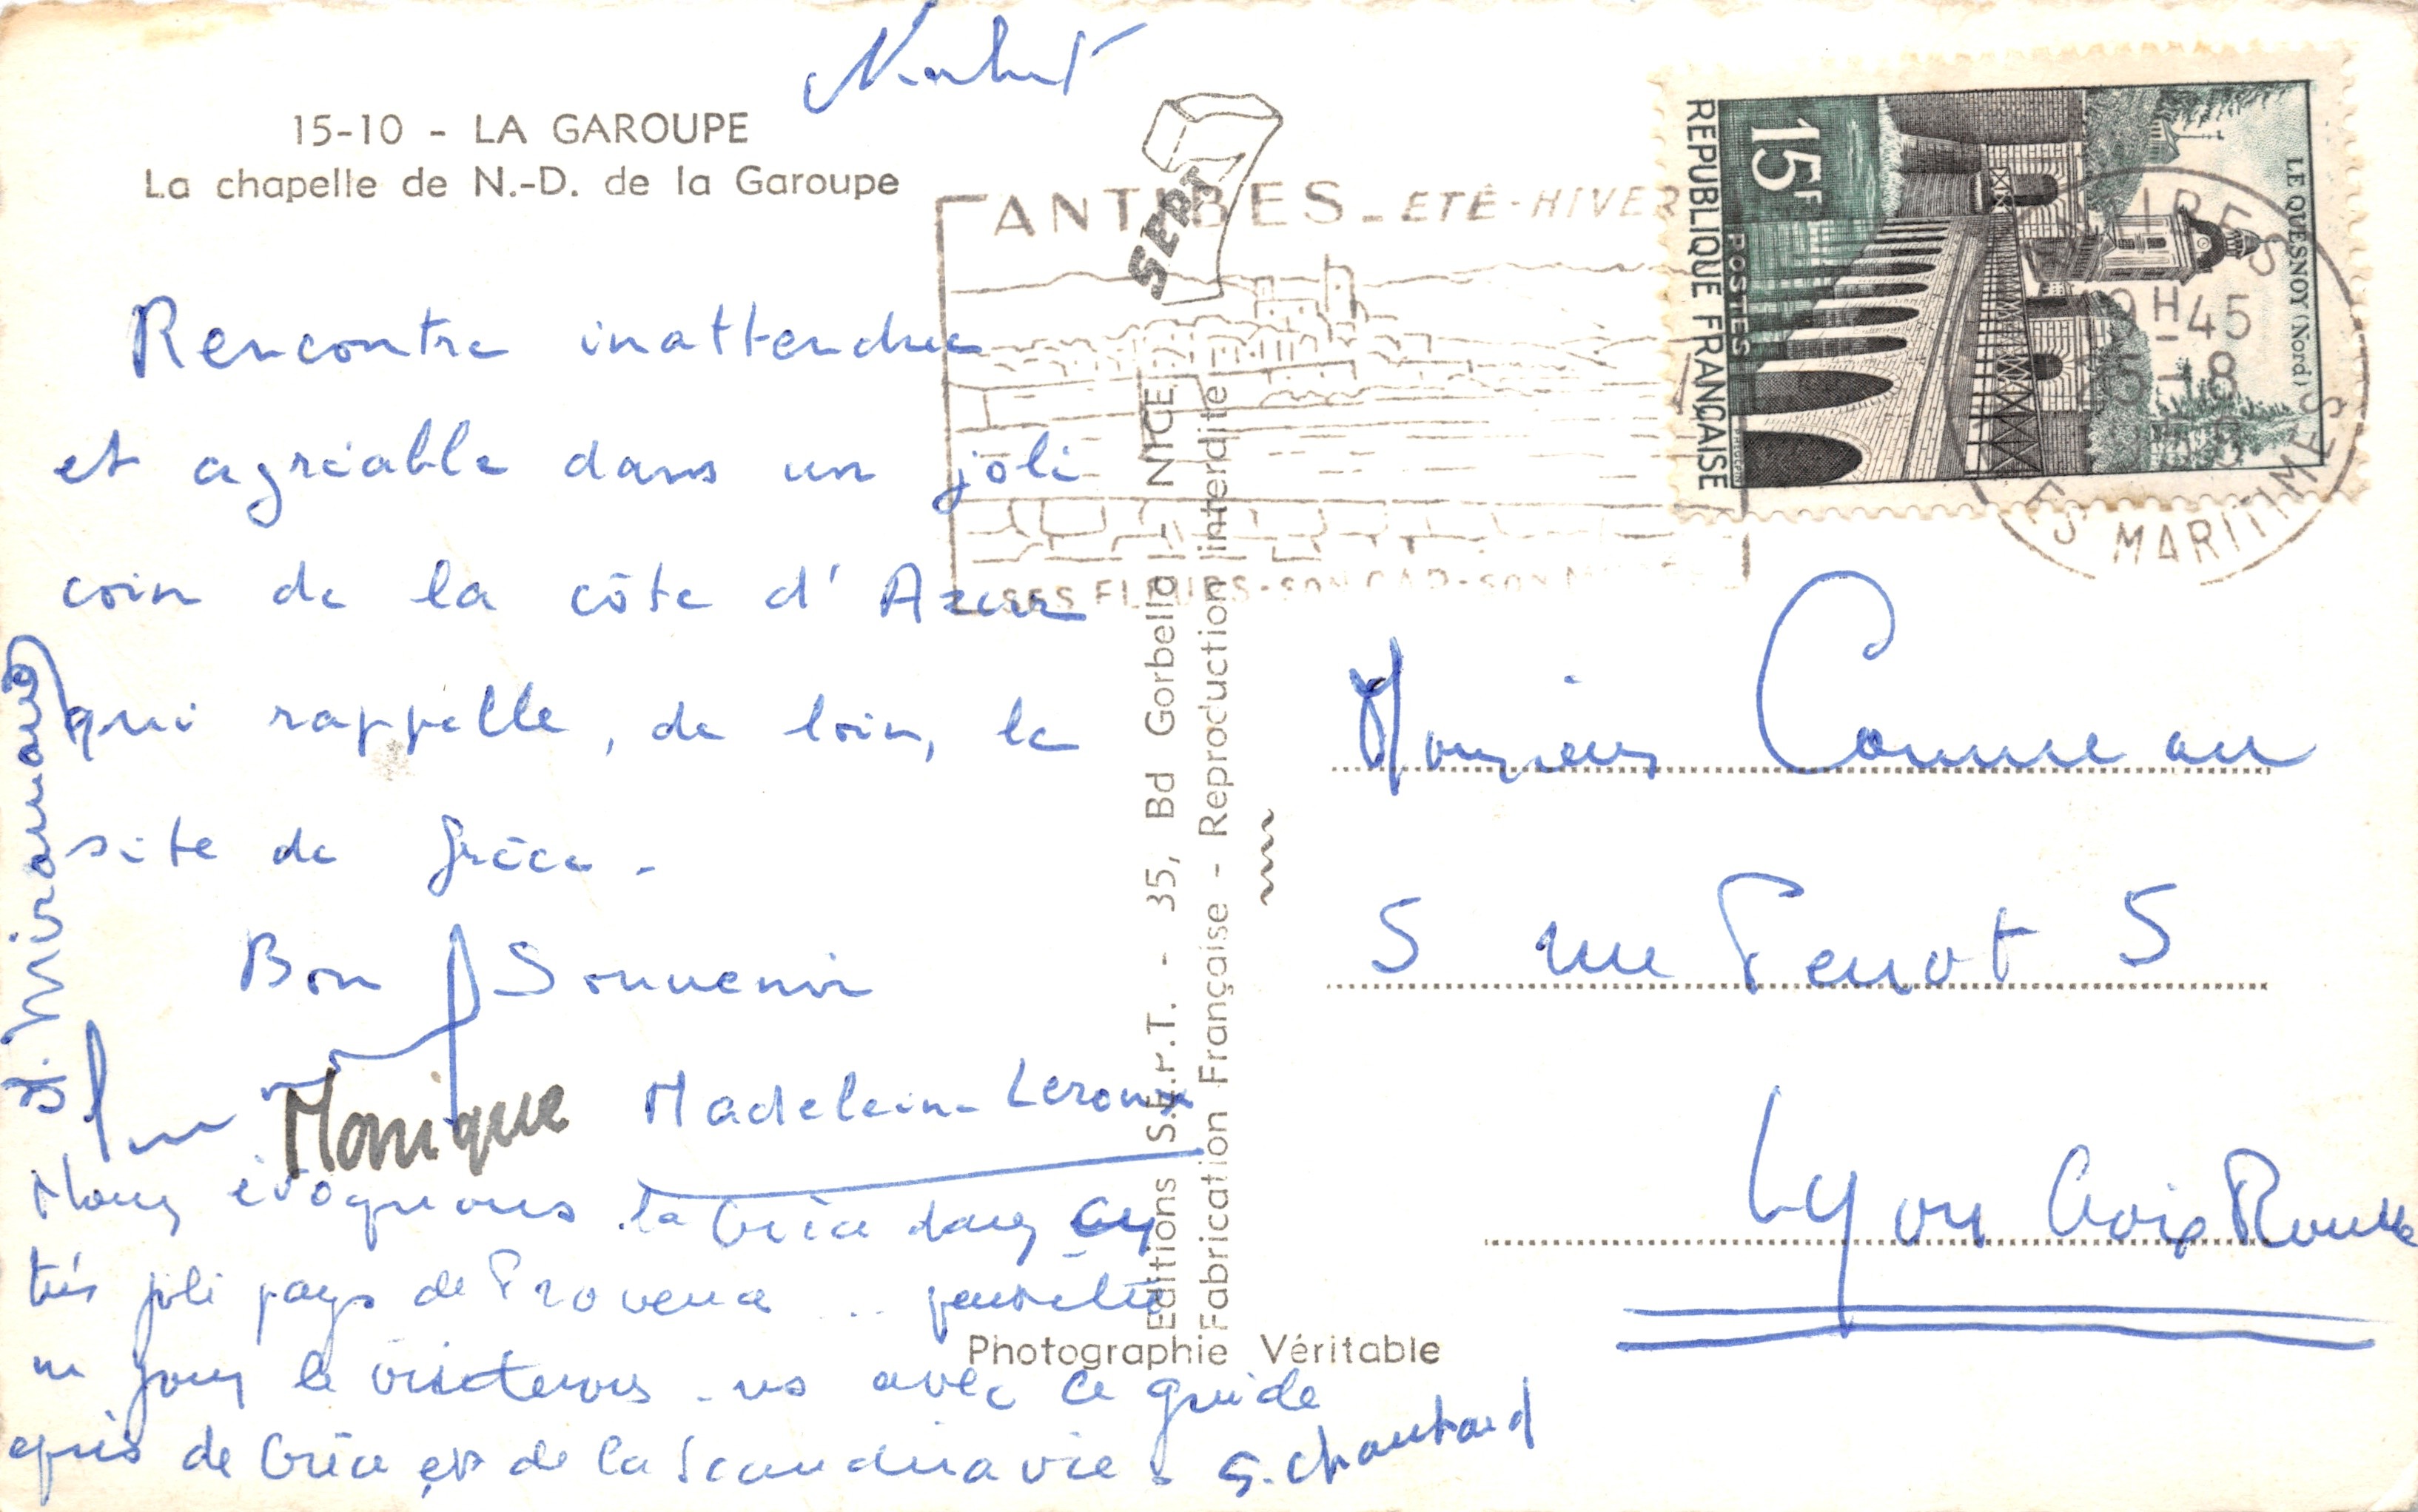 15-10 - LA GAROUPE
La chapelle de N.-D. de la Garoupe
Rencontre inattendue
et agréable dans un joli
coin de la côte d'Azur
qui rappelle, de loin, le
site de Grèce.
Bon Souvenir
Monique
Madeleine Leroux
Nous évoquons la Grèce dans ce
très joli pays de Provence .. peut être
un jour le visiterons-ns avec le guide
de Grèce et de la Scandinavie.
S. Chautard
Miramand
SEPT
Editions S.E.P.T. - 35, Bd Gorbella - NICE
Fabrication Française - Reproduction interdite
Photographie Véritable
ANTIBES - ETÉ-HIVER
SES FLEURS - SON CAP - SON
REPUBLIQUE FRANÇAISE
15F
POSTES
LE QUESNOY (Nord)
H45
8
ES MARITIMES
Monsieur Conneau
5 rue Perrot 5
Lyon Croix Rousse